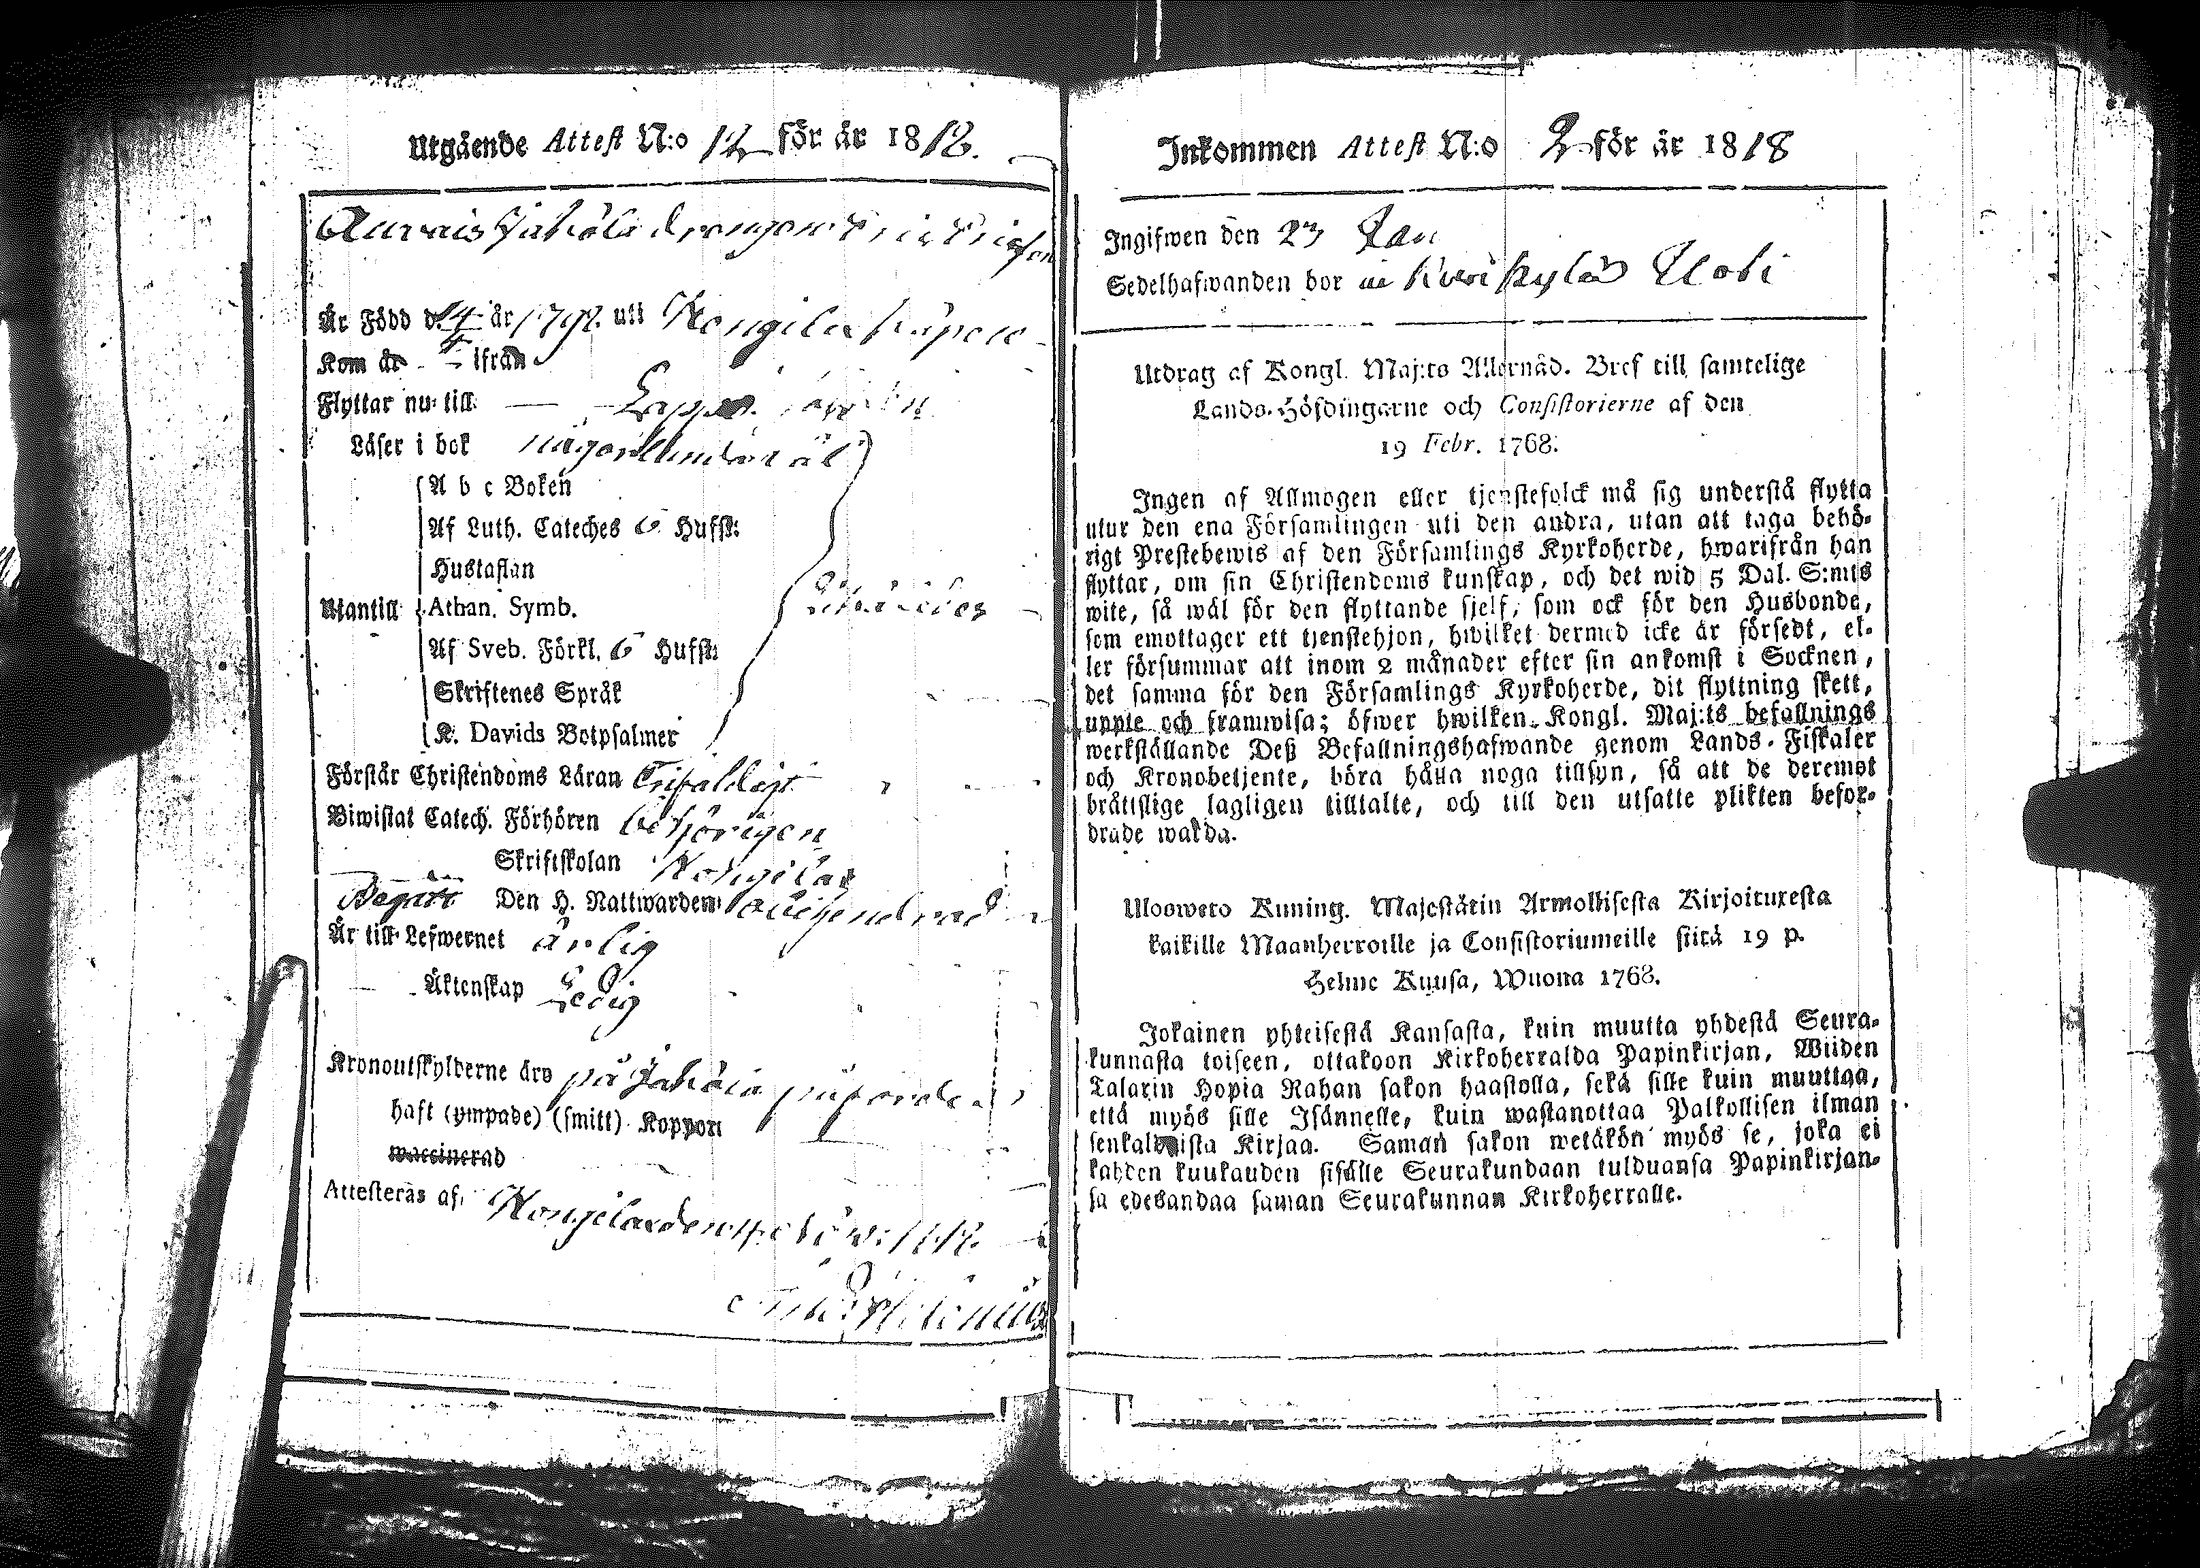 Utgående Attest N:o 12 för år 1818.
Är Född d. 4 år 1792. uti
Kom år - ifrån
Flyttar nu till
Läser i bok någorlunda väl
A b c Boken
Af Luth. Cateches 6 Hufst:
Hustaflan
Utantill Athan. Symb.
Af Sveb. Förkl. 6 Hufst:
Skriftenes Språk
K. Davids Botpsalmer
Förstår Christendoms Läran Enfaldigt
Biwistat Catech. Förhören behörigen
Skriftskolan
Begått Den H. Nattwarden
Är till Lefwernet ärlig
Äktenskap Ledig
Kronoutskylderne äro på
haft (ympade) (smitt) Koppor
waccinerad
Attesteras af
Inkommen Attest N:o 2 för år 1818
Ingifwen den 23 Jan
Sedelhafwanden bor
Utdrag af Kongl. Maj:ts Allernåd. Bref till samtelige
Lands-Höfdingarne och Consistorierne af den
19 Febr. 1768.
Ingen af Allmogen eller tjenstefolck må sig understå flytta
utur den ena Församlingen uti den andra, utan att taga behö-
rigt Prestebewis af den Församlings Kyrkoherde, hwarifrån han
flyttar, om sin Christendoms kunskap, och det wid 5 Dal. S:mts
wite, så wäl för den flyttande sjelf, som ock för den Husbonde,
som emottager ett tjenstehjon, hwilket dermed icke är försedt, el-
ler försummar att inom 2 månader efter sin ankomst i Socknen,
det samma för den Församlings Kyrkoherde, dit flyttning skett,
uppte och framwisa; öfwer hwilken Kongl. Maj:ts befallnings
werkställande Deß Befallningshafwande genom Lands-Fiskaler
och Kronobetjente, böra hålla noga tillsyn, så att de deremot
bråttslige lagligen tilltalte, och till den utsatte plikten befor-
drade warda.
Ulosweto Kuning. Majestätin Armollisesta Kirjoituxesta
kaikille Maanherroille ja Consistoriumeille siitä 19 p.
Helme Kuusa, Wuona 1768.
Jokainen yhteisestä Kansasta, kuin muutta yhdestä Seura-
kunnasta toiseen, ottakoon Kirkoherralda Papinkirjan, Wiiden
Talarin Hopia Rahan sakon haastolla, sekä sille kuin muuttaa,
että myös sille Isännelle, kuin wastanottaa Palkollisen ilman
senkaldaista Kirjaa. Saman sakon wetäkön myös se, joka ei
kahden kuukauden sisälle Seurakundaan tulduansa Papinkirjan-
sa edesandaa saman Seurakunnan Kirkoherralle.